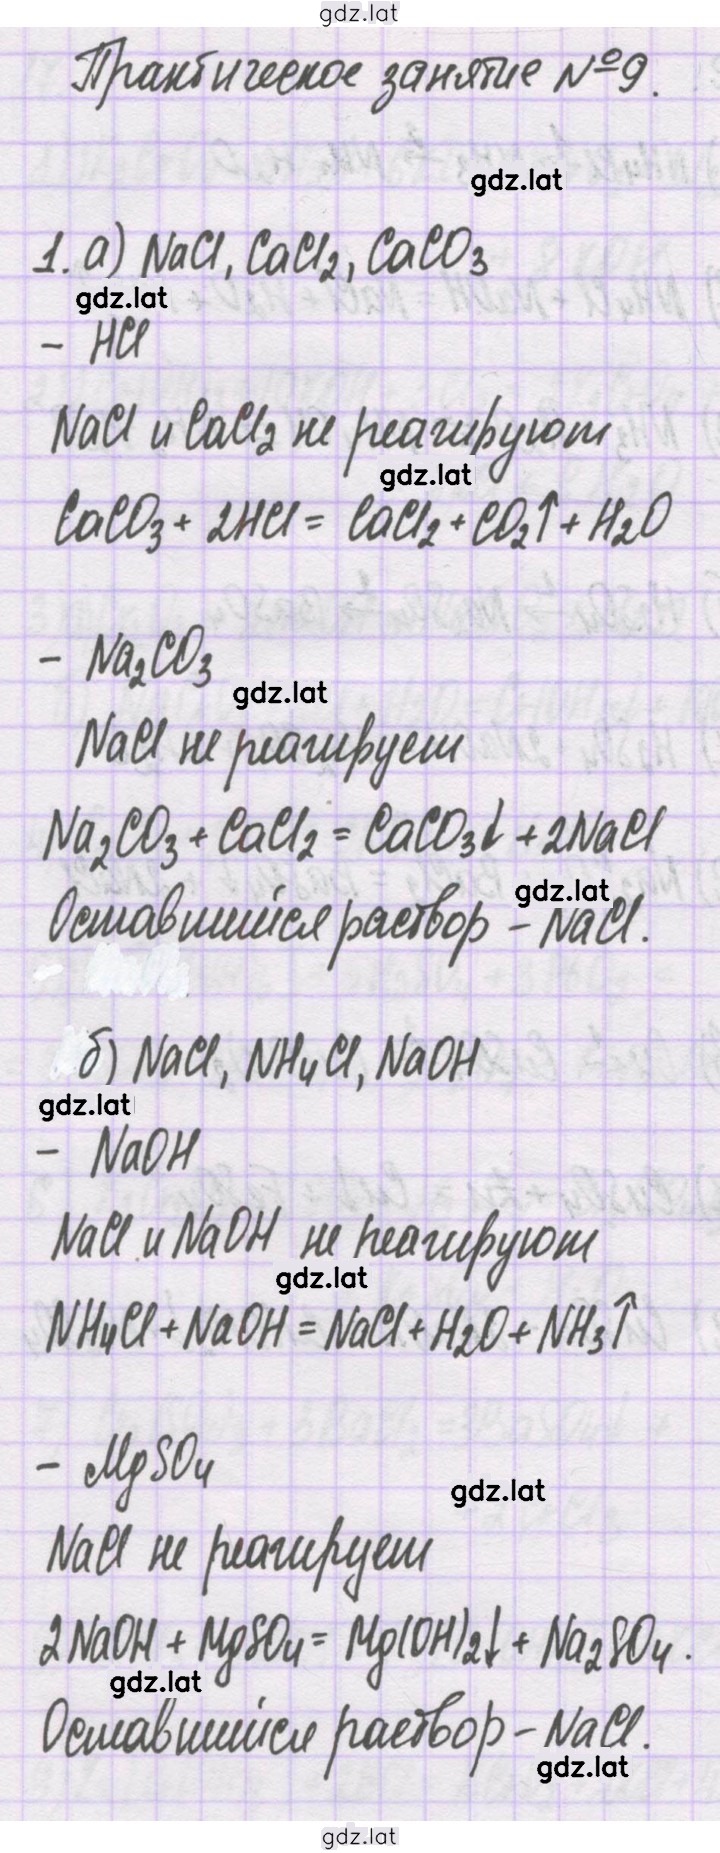 gdz.lat
Практическое занятие №9.
gdz.lat
1. а) NaCl, CaCl2, CaCO3
gdz.lat
- HCl
NaCl и CaCl2 не реагируют
gdz.lat
CaCO3 + 2HCl = CaCl2 + CO2↑ + H2O
- Na2CO3
gdz.lat
NaCl не реагирует
Na2CO3 + CaCl2 = CaCO3↓ + 2NaCl
gdz.lat
Оставшийся раствор - NaCl.
б) NaCl, NH4Cl, NaOH
gdz.lat
- NaOH
NaCl и NaOH не реагируют
gdz.lat
NH4Cl + NaOH = NaCl + H2O + NH3↑
- MgSO4
gdz.lat
NaCl не реагирует
2NaOH + MgSO4 = Mg(OH)2↓ + Na2SO4.
gdz.lat
Оставшийся раствор - NaCl.
gdz.lat
gdz.lat